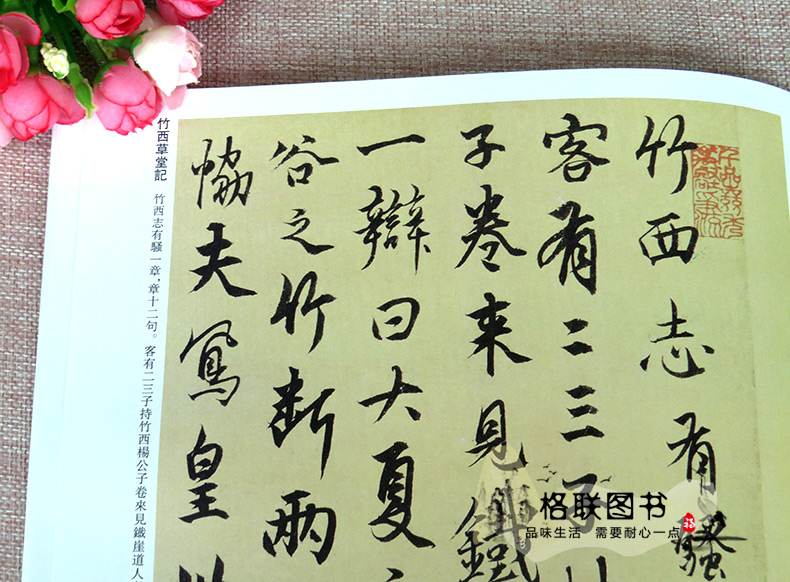 竹西志有騷
客有二三子
子卷来見鐵
一辯曰大夏
谷之竹断兩
協夫鳳皇
竹西草堂記 竹西志有騷一章，章十二句。 客有二三子持竹西楊公子卷來見鐵崖道人
格联图书
品味生活 需要耐心一点